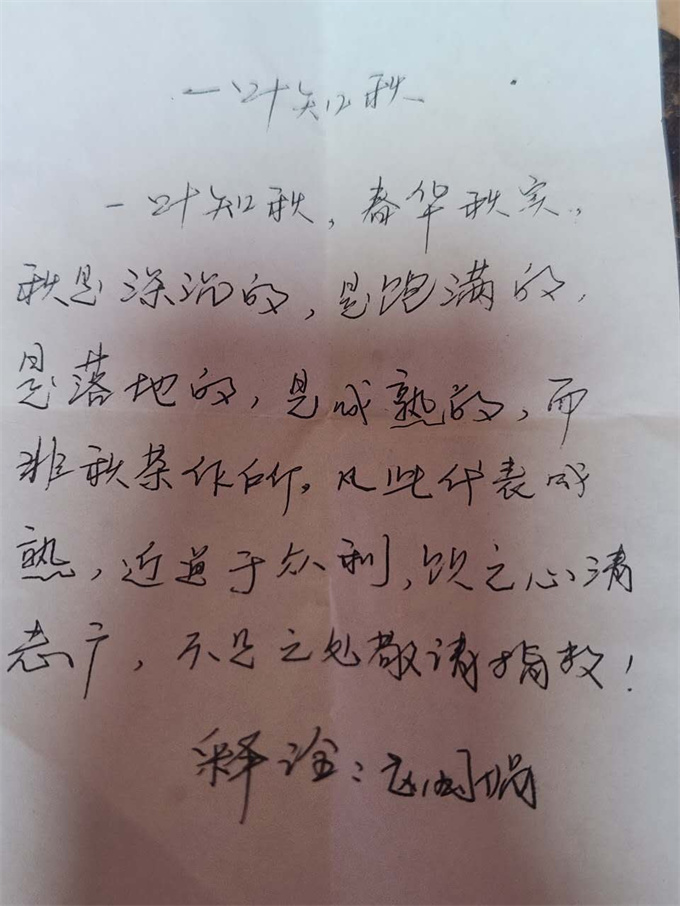 一叶知秋
一叶知秋，春华秋实，
秋是深沉的，是饱满的，
是落地的，是成熟的，而
非秋茶作，凡此代表成
熟，近道于众利，饮之心清
志广，不足之处敬请指教！
释诠：